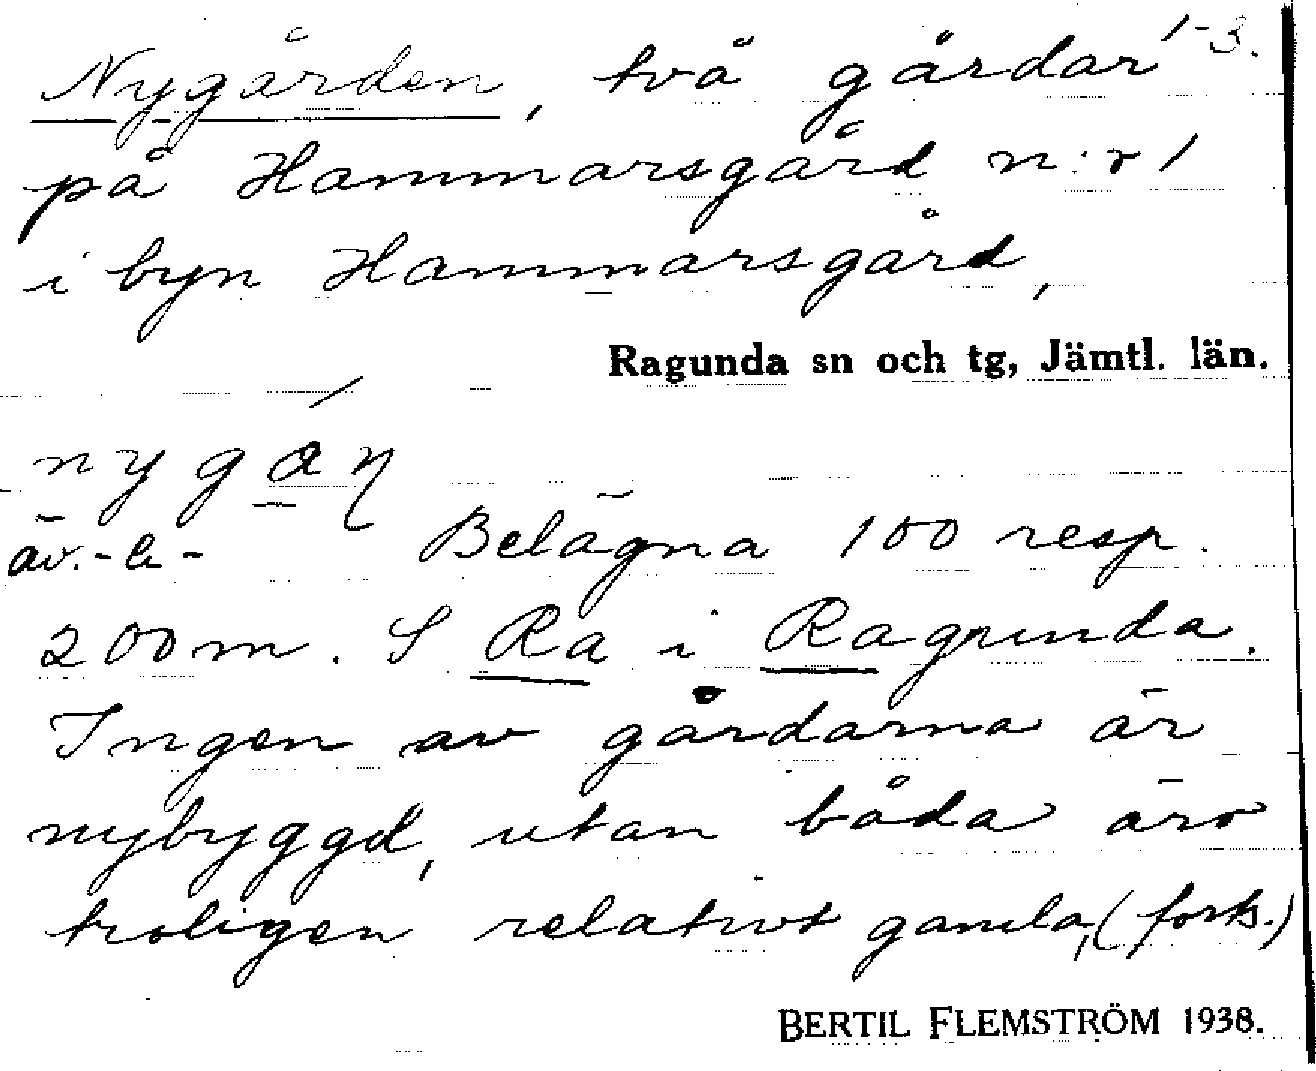 1-3.
Nygården, två gårdar
på Hammarsgård n:r 1
i byn Hammarsgård,
Ragunda sn och tg, Jämtl. län.
äv. Belägna 100 resp.
200 m. S Ra i Ragunda.
Ingen av gårdarna är
nybyggd, utan båda äro
troligen relativt gamla, (forts.)
BERTIL FLEMSTRÖM 1938.